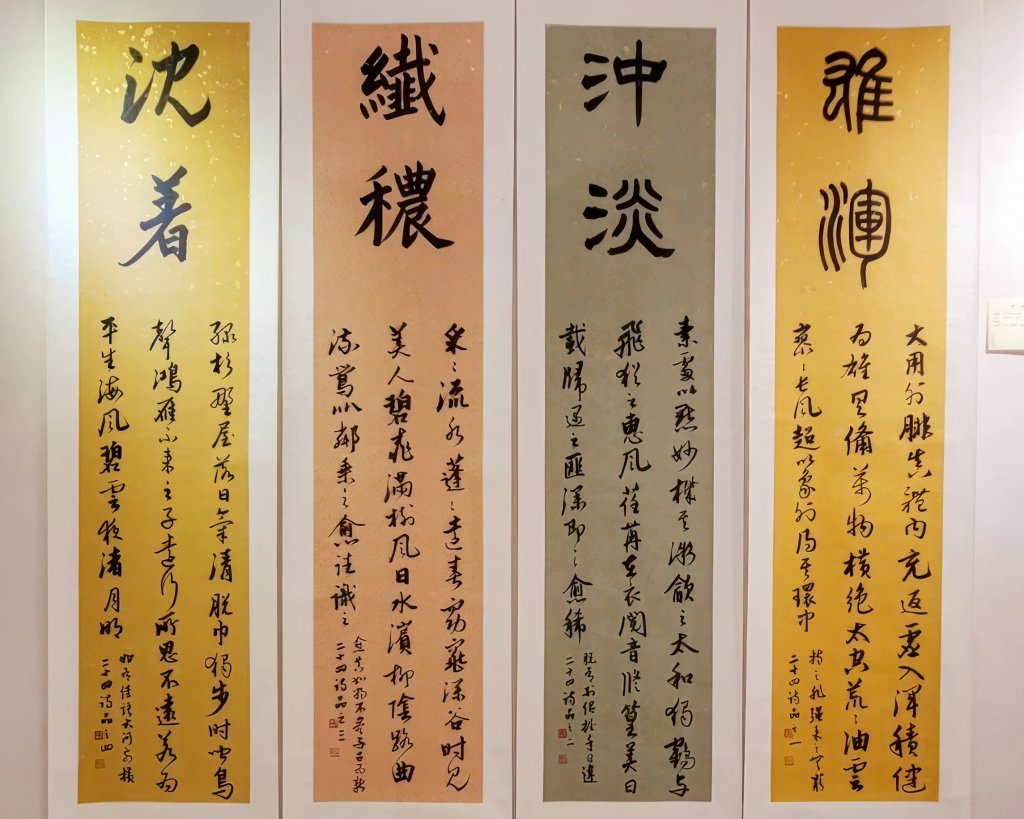 雄渾
大用外腓真體内充返虛入渾積健
為雄具備萬物橫絕太空荒〻油雲
寥〻長風超以象外得其環中
持之匪強来之無窮
二十四詩品之一
沖淡
素處以默妙機其微飲之太和獨鶴与
飛猶之惠風荏苒在衣閱音脩篁美曰
載歸遇之匪深即之愈稀
脫有形似握手已違
二十四詩品之二
纖穠
采〻流水蓬〻遠春窈窕深谷時見
美人碧桃滿樹風日水濱柳陰路曲
流鶯比鄰乘之愈往識之
愈真如將不盡与古為新
二十四詩品之三
沈着
綠杉野屋落日氣清脫巾獨步時聞鳥
聲鴻雁不来之子遠行所思不遠若為
平生海風碧雲夜渚月明
如有佳語大河前橫
二十四詩品之四